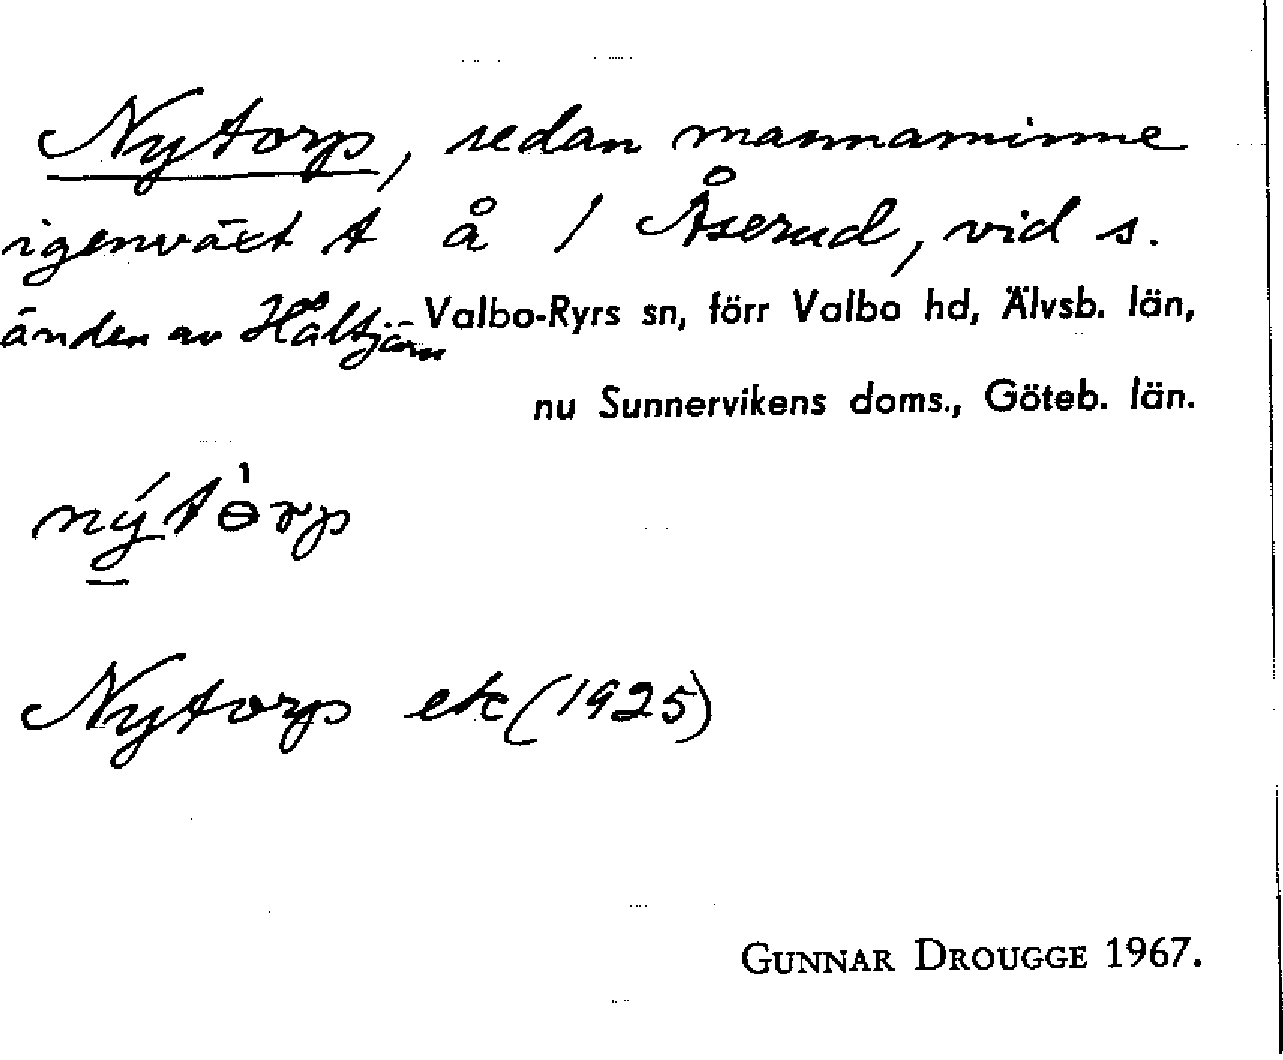 Nytorp, sedan mannaminne
igenväxt t å 1 Åserud, vid s.
änden av Håltjärn
Valbo-Ryrs sn, förr Valbo hd, Älvsb. län,
nu Sunnervikens doms., Göteb. län.
nýtèrp
Nytorp etc (1925)
GUNNAR DROUGGE 1967.